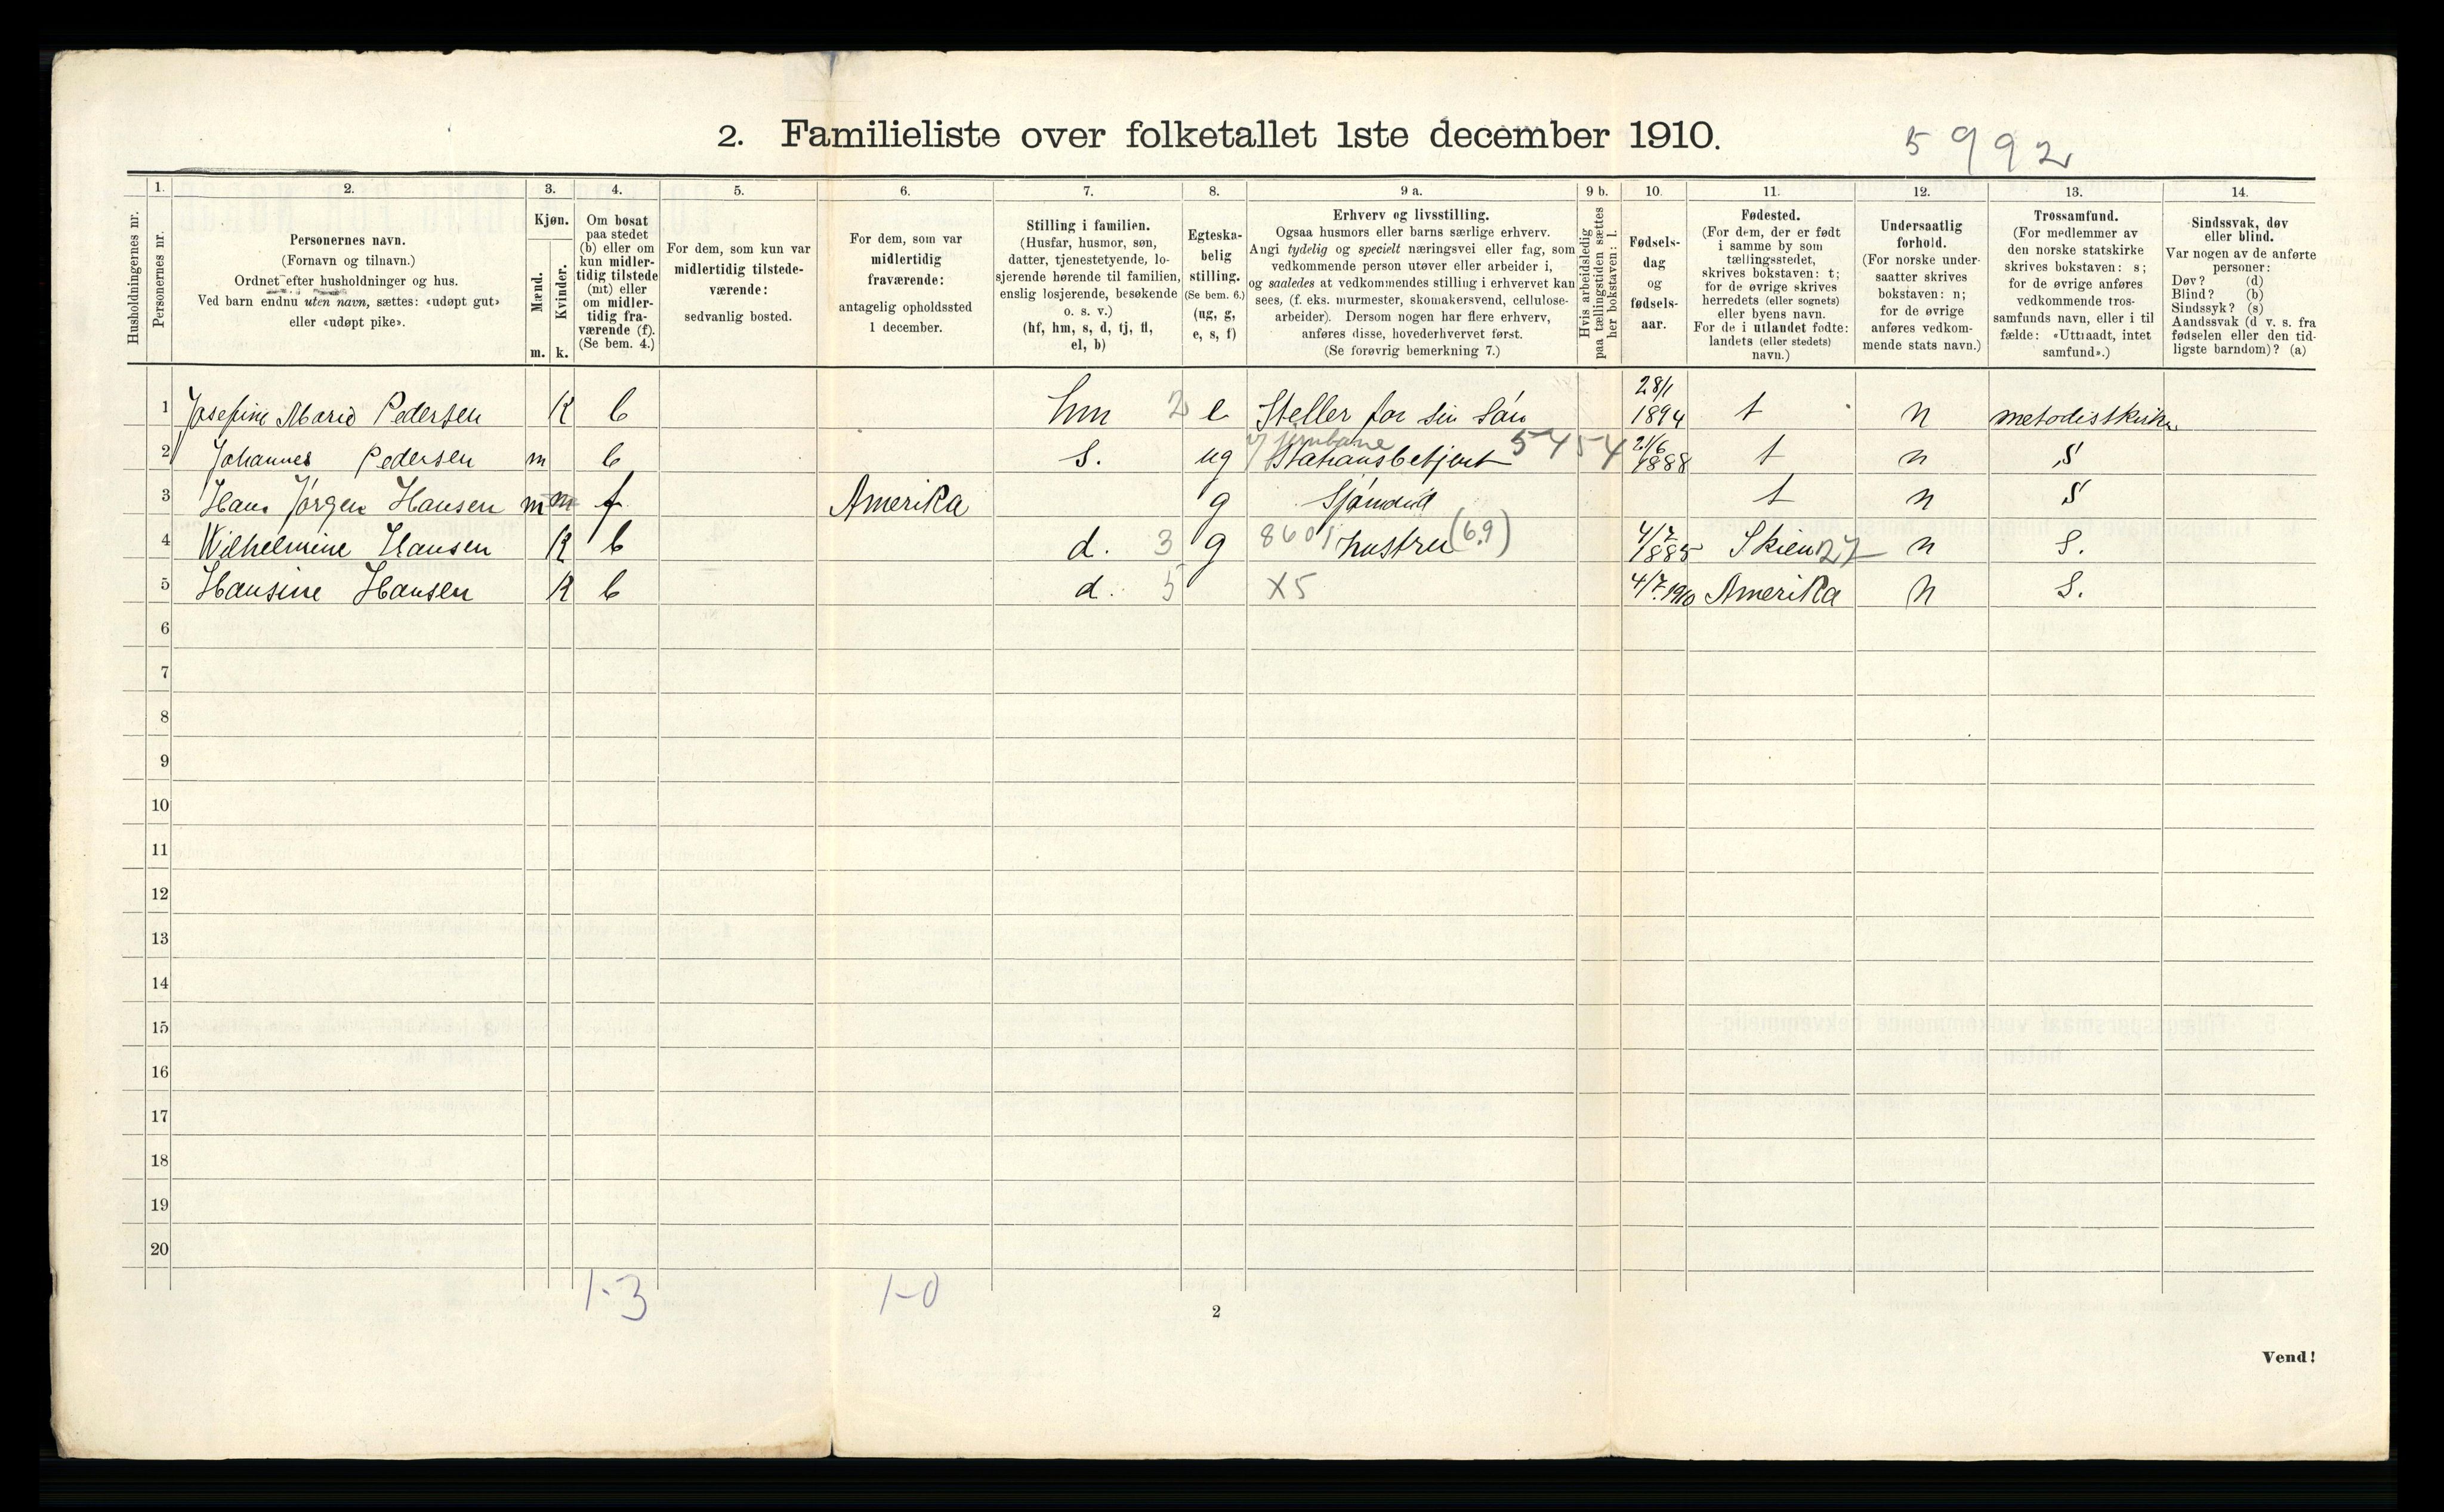 2. Familieliste over folketallet 1ste december 1910.
5992
Husholdningernes nr.
1.
Personernes nr.
2.
Personernes navn.
(Fornavn og tilnavn.)
Ordnet efter husholdninger og hus.
Ved barn endnu uten navn, sættes: «udøpt gut»
eller «udøpt pike».
3.
Kjøn.
Mænd.
Kvinder.
m. k.
4.
Om bosat
paa stedet
(b) eller om
kun midler-
tidig tilstede
(mt) eller
om midler-
tidig fra-
værende (f).
(Se bem. 4.)
5.
For dem, som kun var
midlertidig tilstede-
værende:
sedvanlig bosted.
6.
For dem, som var
midlertidig
fraværende:
antagelig opholdssted
1 december.
7.
Stilling i familien.
(Husfar, husmor, søn,
datter, tjenestetyende, lo-
sjerende hørende til familien,
enslig losjerende, besøkende
o. s. v.)
(hf, hm, s, d, tj, fl,
el, b)
8.
Egteska-
belig
stilling.
(Se bem. 6.)
(ug, g,
e, s, f)
9 a.
Erhverv og livsstilling.
Ogsaa husmors eller barns særlige erhverv.
Angi tydelig og specielt næringsvei eller fag, som
vedkommende person utøver eller arbeider i,
og saaledes at vedkommendes stilling i erhvervet kan
sees, (f. eks. murmester, skomakersvend, cellulose-
arbeider). Dersom nogen har flere erhverv,
anføres disse, hovederhvervet først.
(Se forøvrig bemerkning 7.)
9 b.
Hvis arbeidsledig
paa tællingstiden sættes
her bokstaven: l.
10.
Fødsels-
dag
og
fødsels-
aar.
11.
Fødested.
(For dem, der er født
i samme by som
tællingsstedet,
skrives bokstaven: t;
for de øvrige skrives
herredets (eller sognets)
eller byens navn.
For de i utlandet fødte:
landets (eller stedets)
navn.)
12.
Undersaatlig
forhold.
(For norske under-
saatter skrives
bokstaven: n;
for de øvrige
anføres vedkom-
mende stats navn.)
13.
Trossamfund.
(For medlemmer av
den norske statskirke
skrives bokstaven: s;
for de øvrige anføres
vedkommende tros-
samfunds navn, eller i til
fælde: «Uttraadt, intet
samfund».)
14.
Sindssvak, døv
eller blind.
Var nogen av de anførte
personer:
Døv? (d)
Blind? (b)
Sindssyk? (s)
Aandssvak (d v. s. fra
fødselen eller den tid-
ligste barndom)? (a)
1 Josefine Marie Pedersen K b hm 2 e Steller for sin Sön 28/1 1894 t n metodistkirke
2 Johannes Pedersen m b s. ug v/ jernbane Stationsbetjent 5454 21/6 1888 t n S
3 Hans Jörgen Hansen m m f Amerika g Sjömand t n S
4 Wilhelmine Hansen K b d. 3 g 8601 hustru (6.9) 4/7 1885 Skien 27 n S.
5 Hansine Hansen K b d. 5 X5 4/7. 1910 Amerika n S.
6
7
8
9
10
11
12
13
14
15
16
17
18
19
20
1-3 1-0
2
Vend!